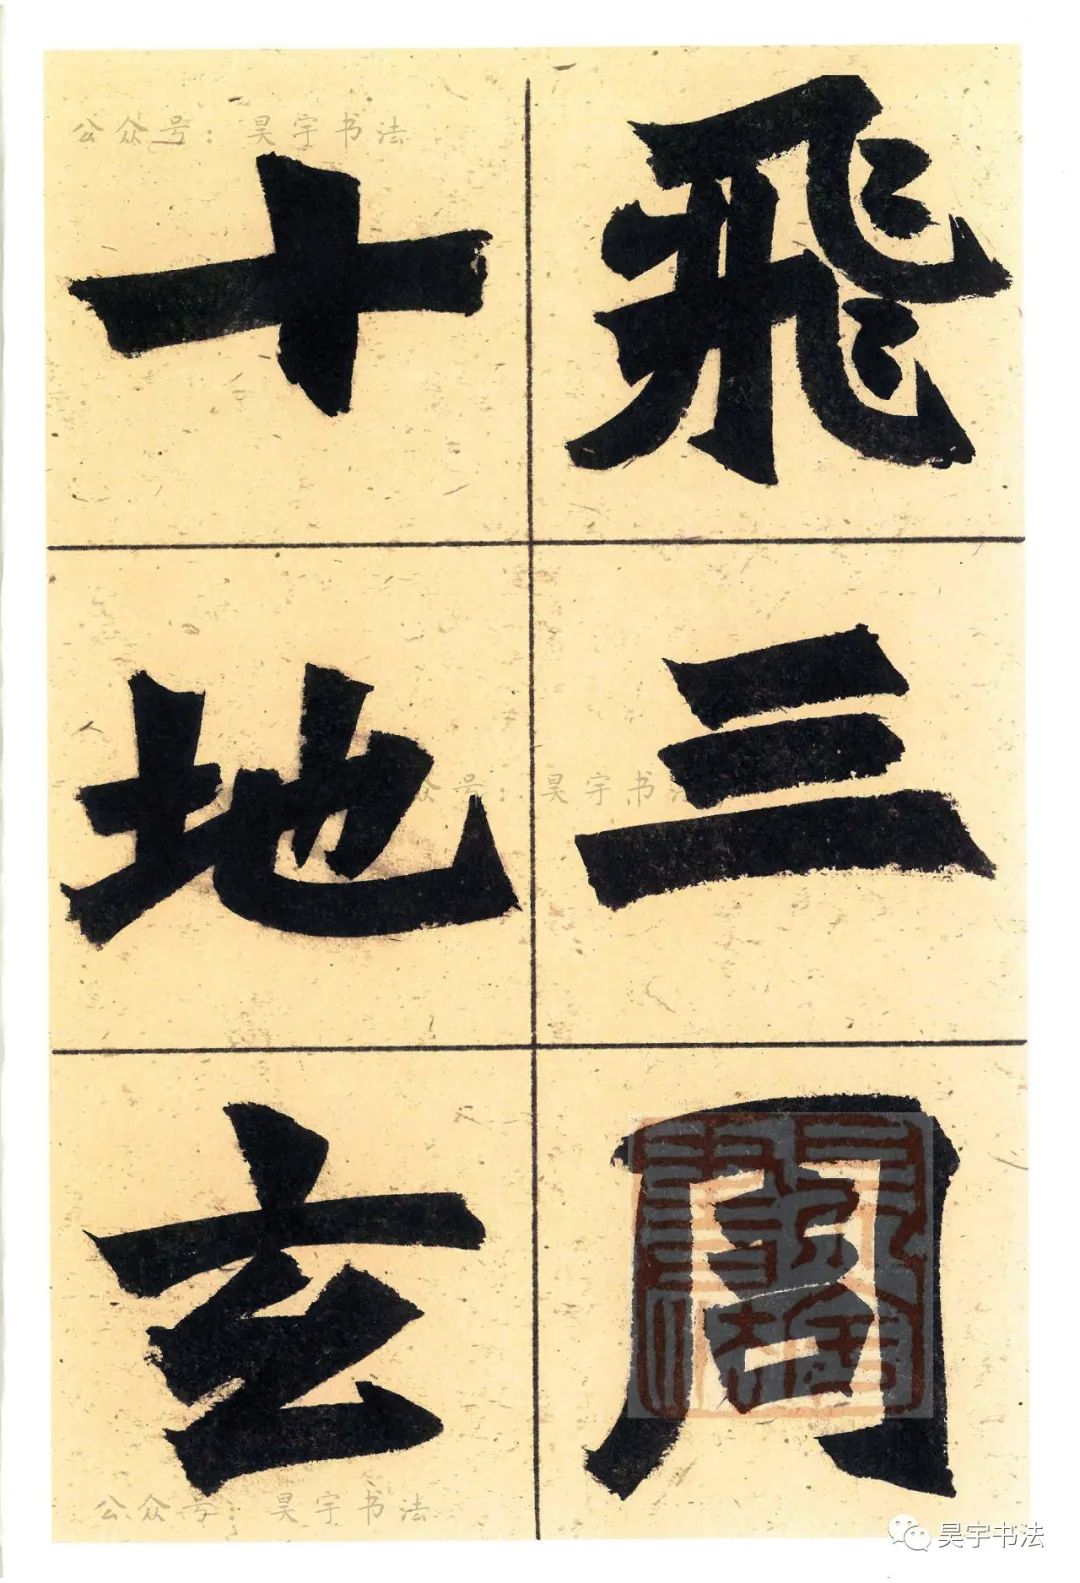 飛三周
十地玄
公众号：昊宇书法
众号：昊宇书法
公众号：昊宇书法
昊宇书法